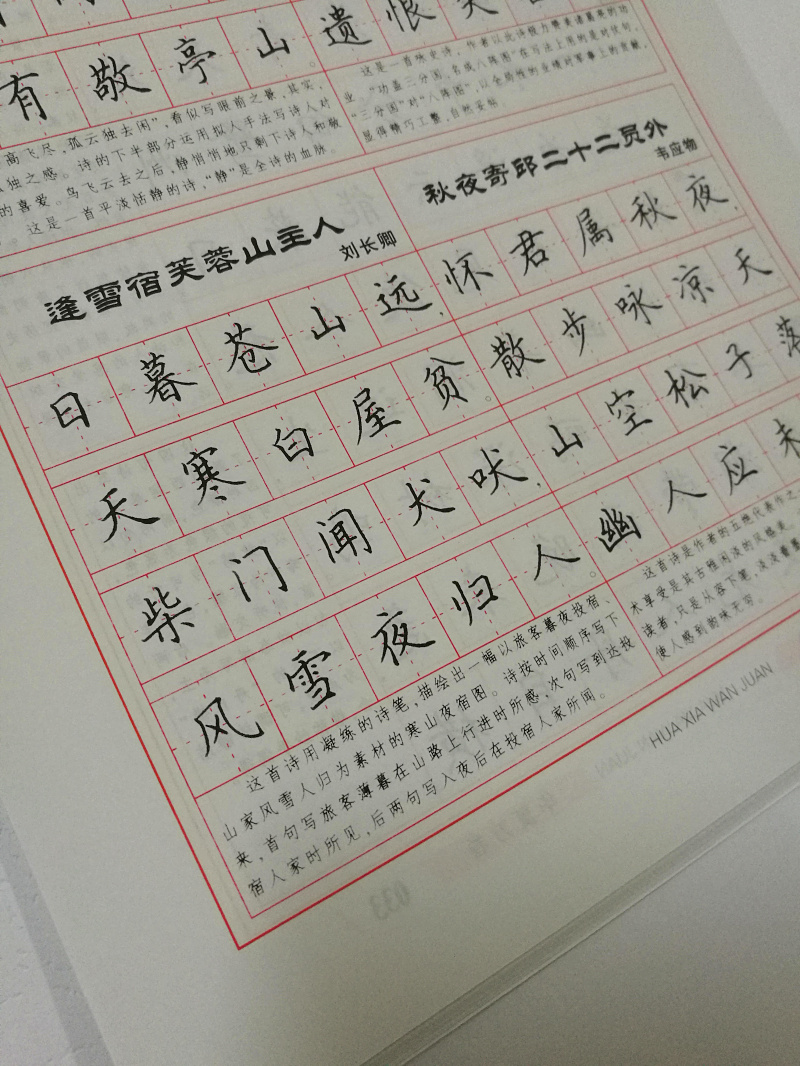 有敬亭山。遗恨失
高飞尽，孤云独去闲"，看似写眼前之景，其实，
独之感。诗的下半部分运用拟人手法写诗人对
的喜爱。鸟飞云去之后，静悄悄地只剩下诗人和敬
这是一首平淡恬静的诗，"静"是全诗的血脉。
这是一首咏史诗，作者以此诗极力赞美诸葛亮的功
业。"功盖三分国，名成八阵图"在写法上用的是对仗句，
"三分国"对"八阵图"，以全局性的业绩对军事上的贡献，
显得精巧工整，自然妥帖。
逢雪宿芙蓉山主人
刘长卿
日暮苍山远，
天寒白屋贫。
柴门闻犬吠，
风雪夜归人。
这首诗用凝练的诗笔，描绘出一幅以旅客暮夜投宿、
山家风雪人归为素材的寒山夜宿图。诗按时间顺序写下
来，首句写旅客薄暮在山路上行进时所感，次句写到达投
宿人家时所见，后两句写入夜后在投宿人家所闻。
秋夜寄邱二十二员外
韦应物
怀君属秋夜，
散步咏凉天
山空松子落
幽人应未
这首诗是作者的五绝代表作之
术享受是其古雅闲淡的风格美。
读者，只是从容下笔，淡淡着墨
使人感到韵味无穷。
HUA XIA WAN JUAN
033